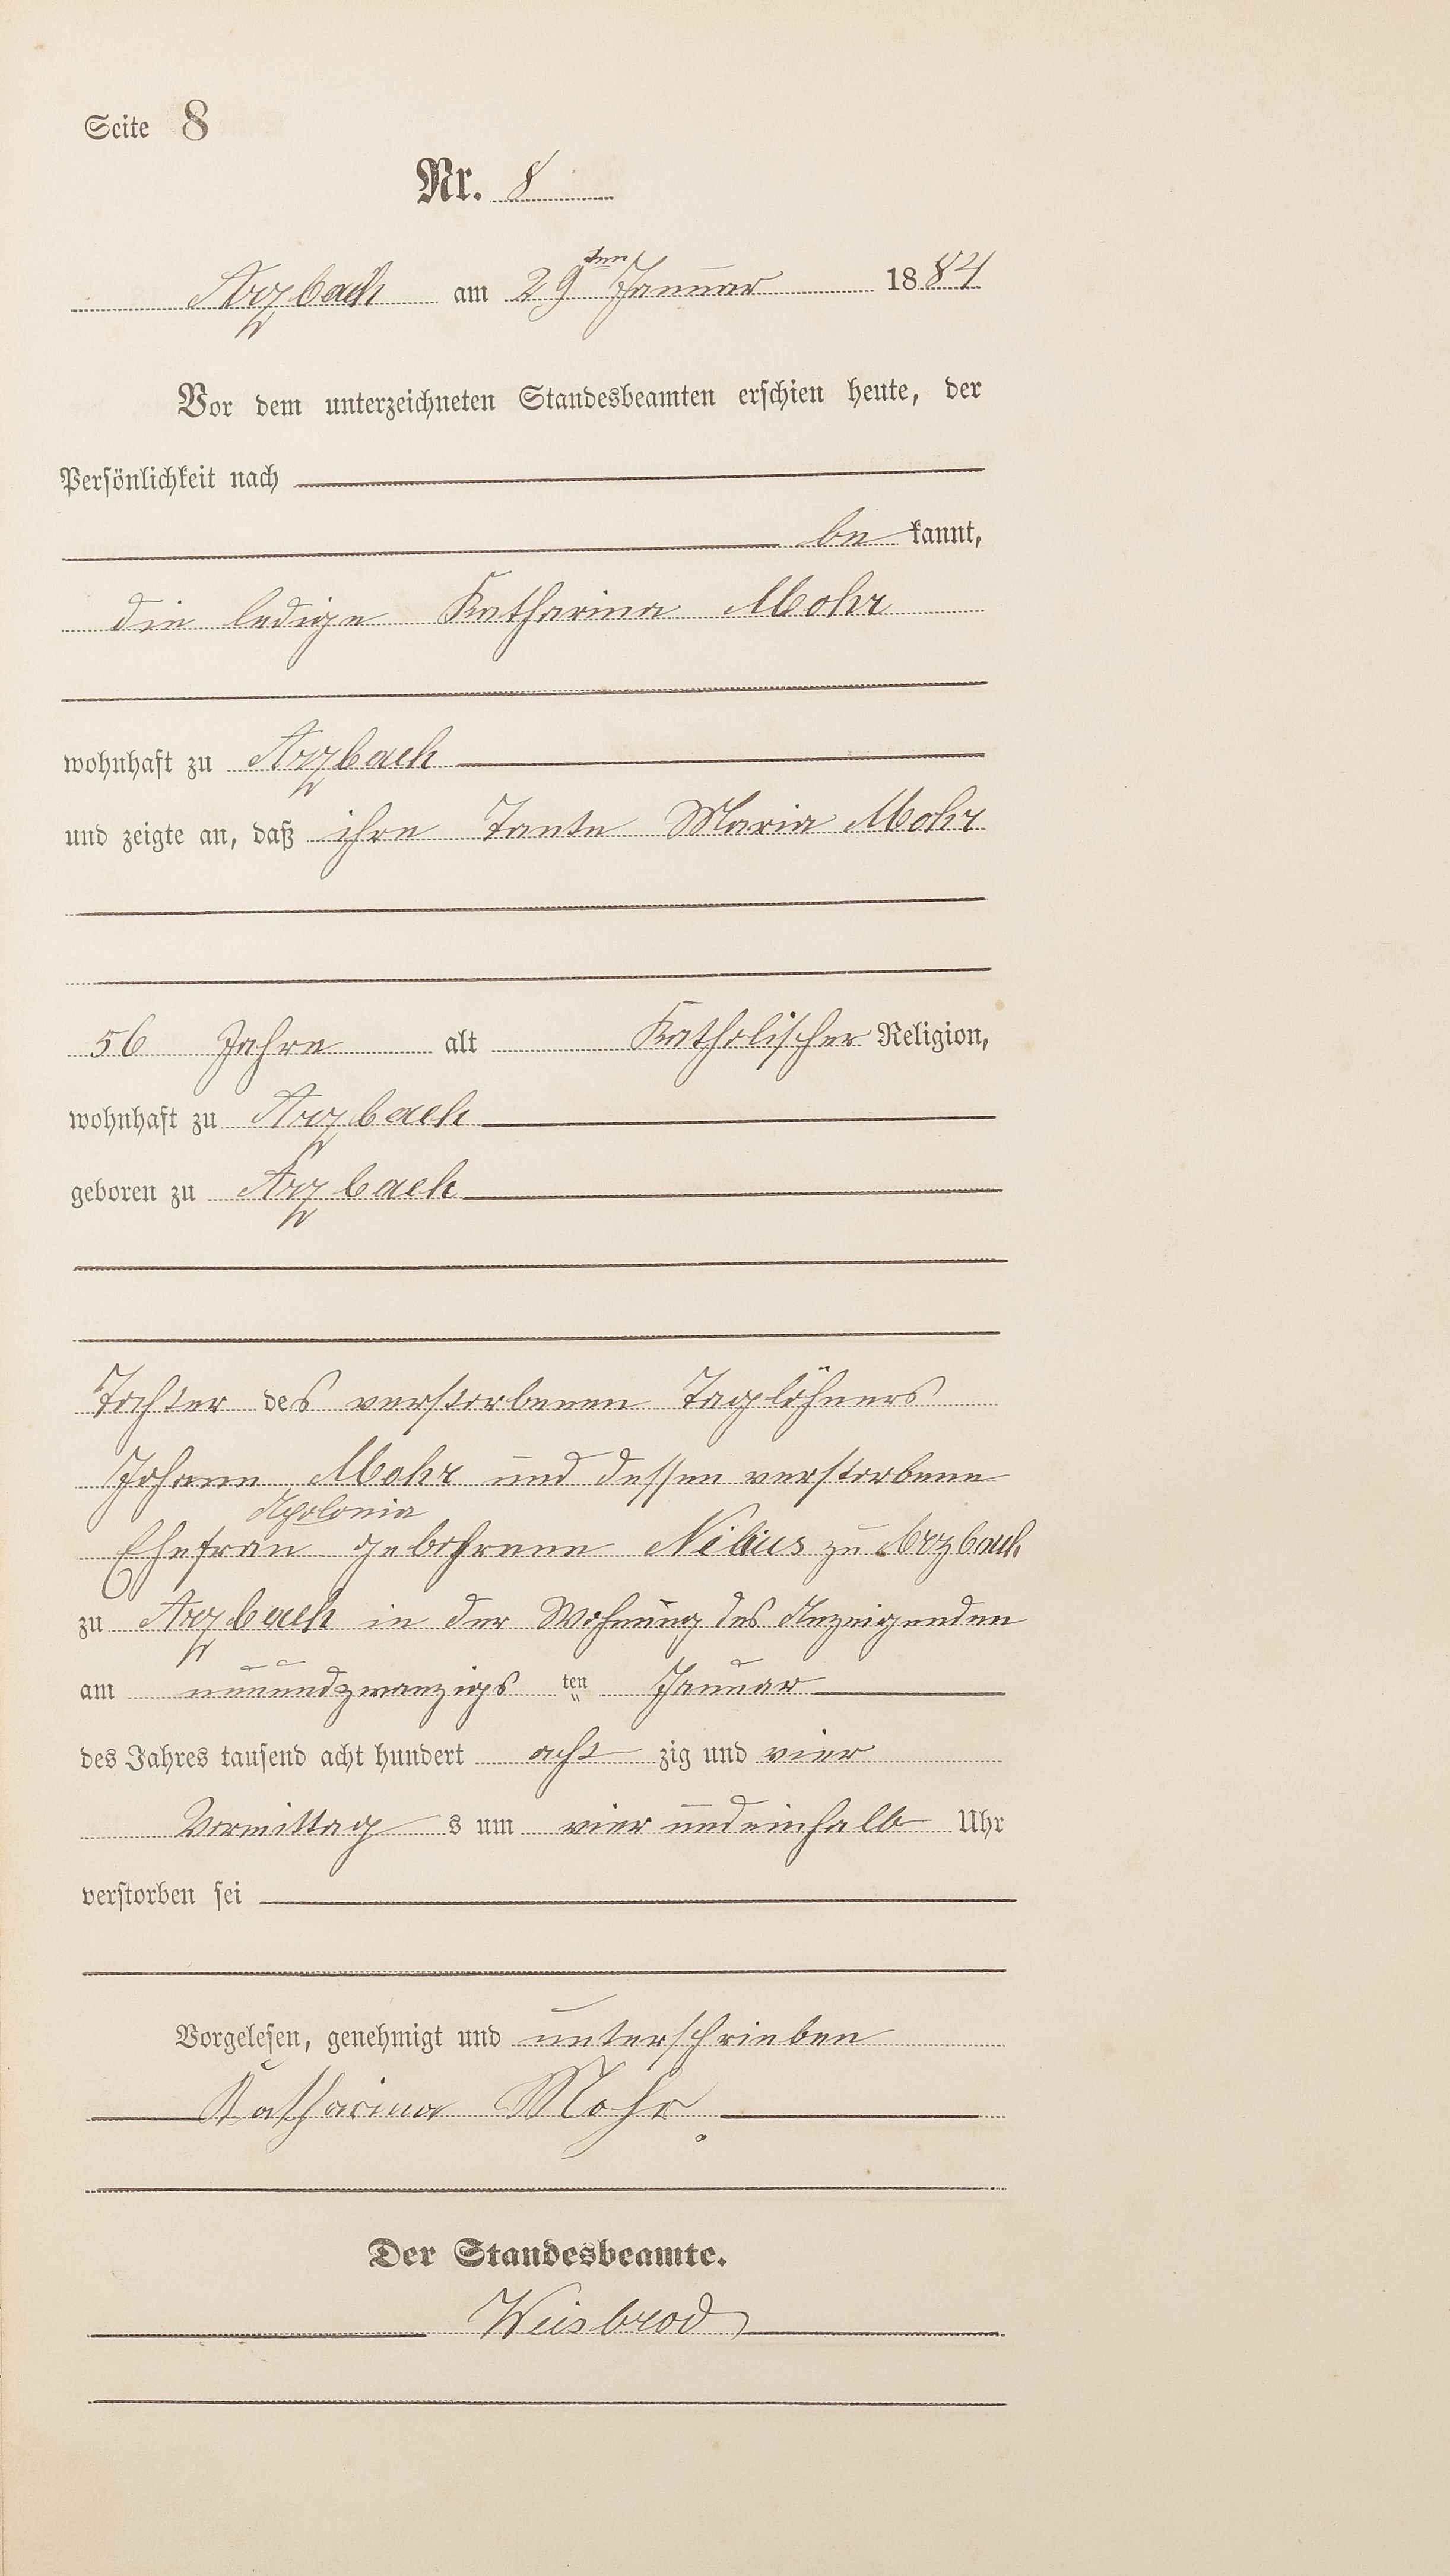 Seite 8
Nr. 8
Arzbach am 29ten Januar 1884
Vor dem unterzeichneten Standesbeamten erschien heute, der
Persönlichkeit nach
be kannt,
die ledige Katharina Mohr
wohnhaft zu Arzbach
und zeigte an, daß ihre Tante Maria Mohr
56 Jahre alt Katholischer Religion,
wohnhaft zu Arzbach
geboren zu Arzbach
Tochter des verstorbenen Taglöhners
Johann Mohr und dessen verstorbene
Apolonia
Ehefrau gebohrene Nilius zu Arzbach
zu Arzbach in der Wohnung des Anzeigenden
am neunundzwanzigs ten Januar
des Jahres tausend acht hundert acht zig und vier
Vormittag s um vier undeinhalb Uhr
verstorben sei
Vorgelesen, genehmigt und unterschrieben
Katharina Mohr
Der Standesbeamte.
Weisbrod